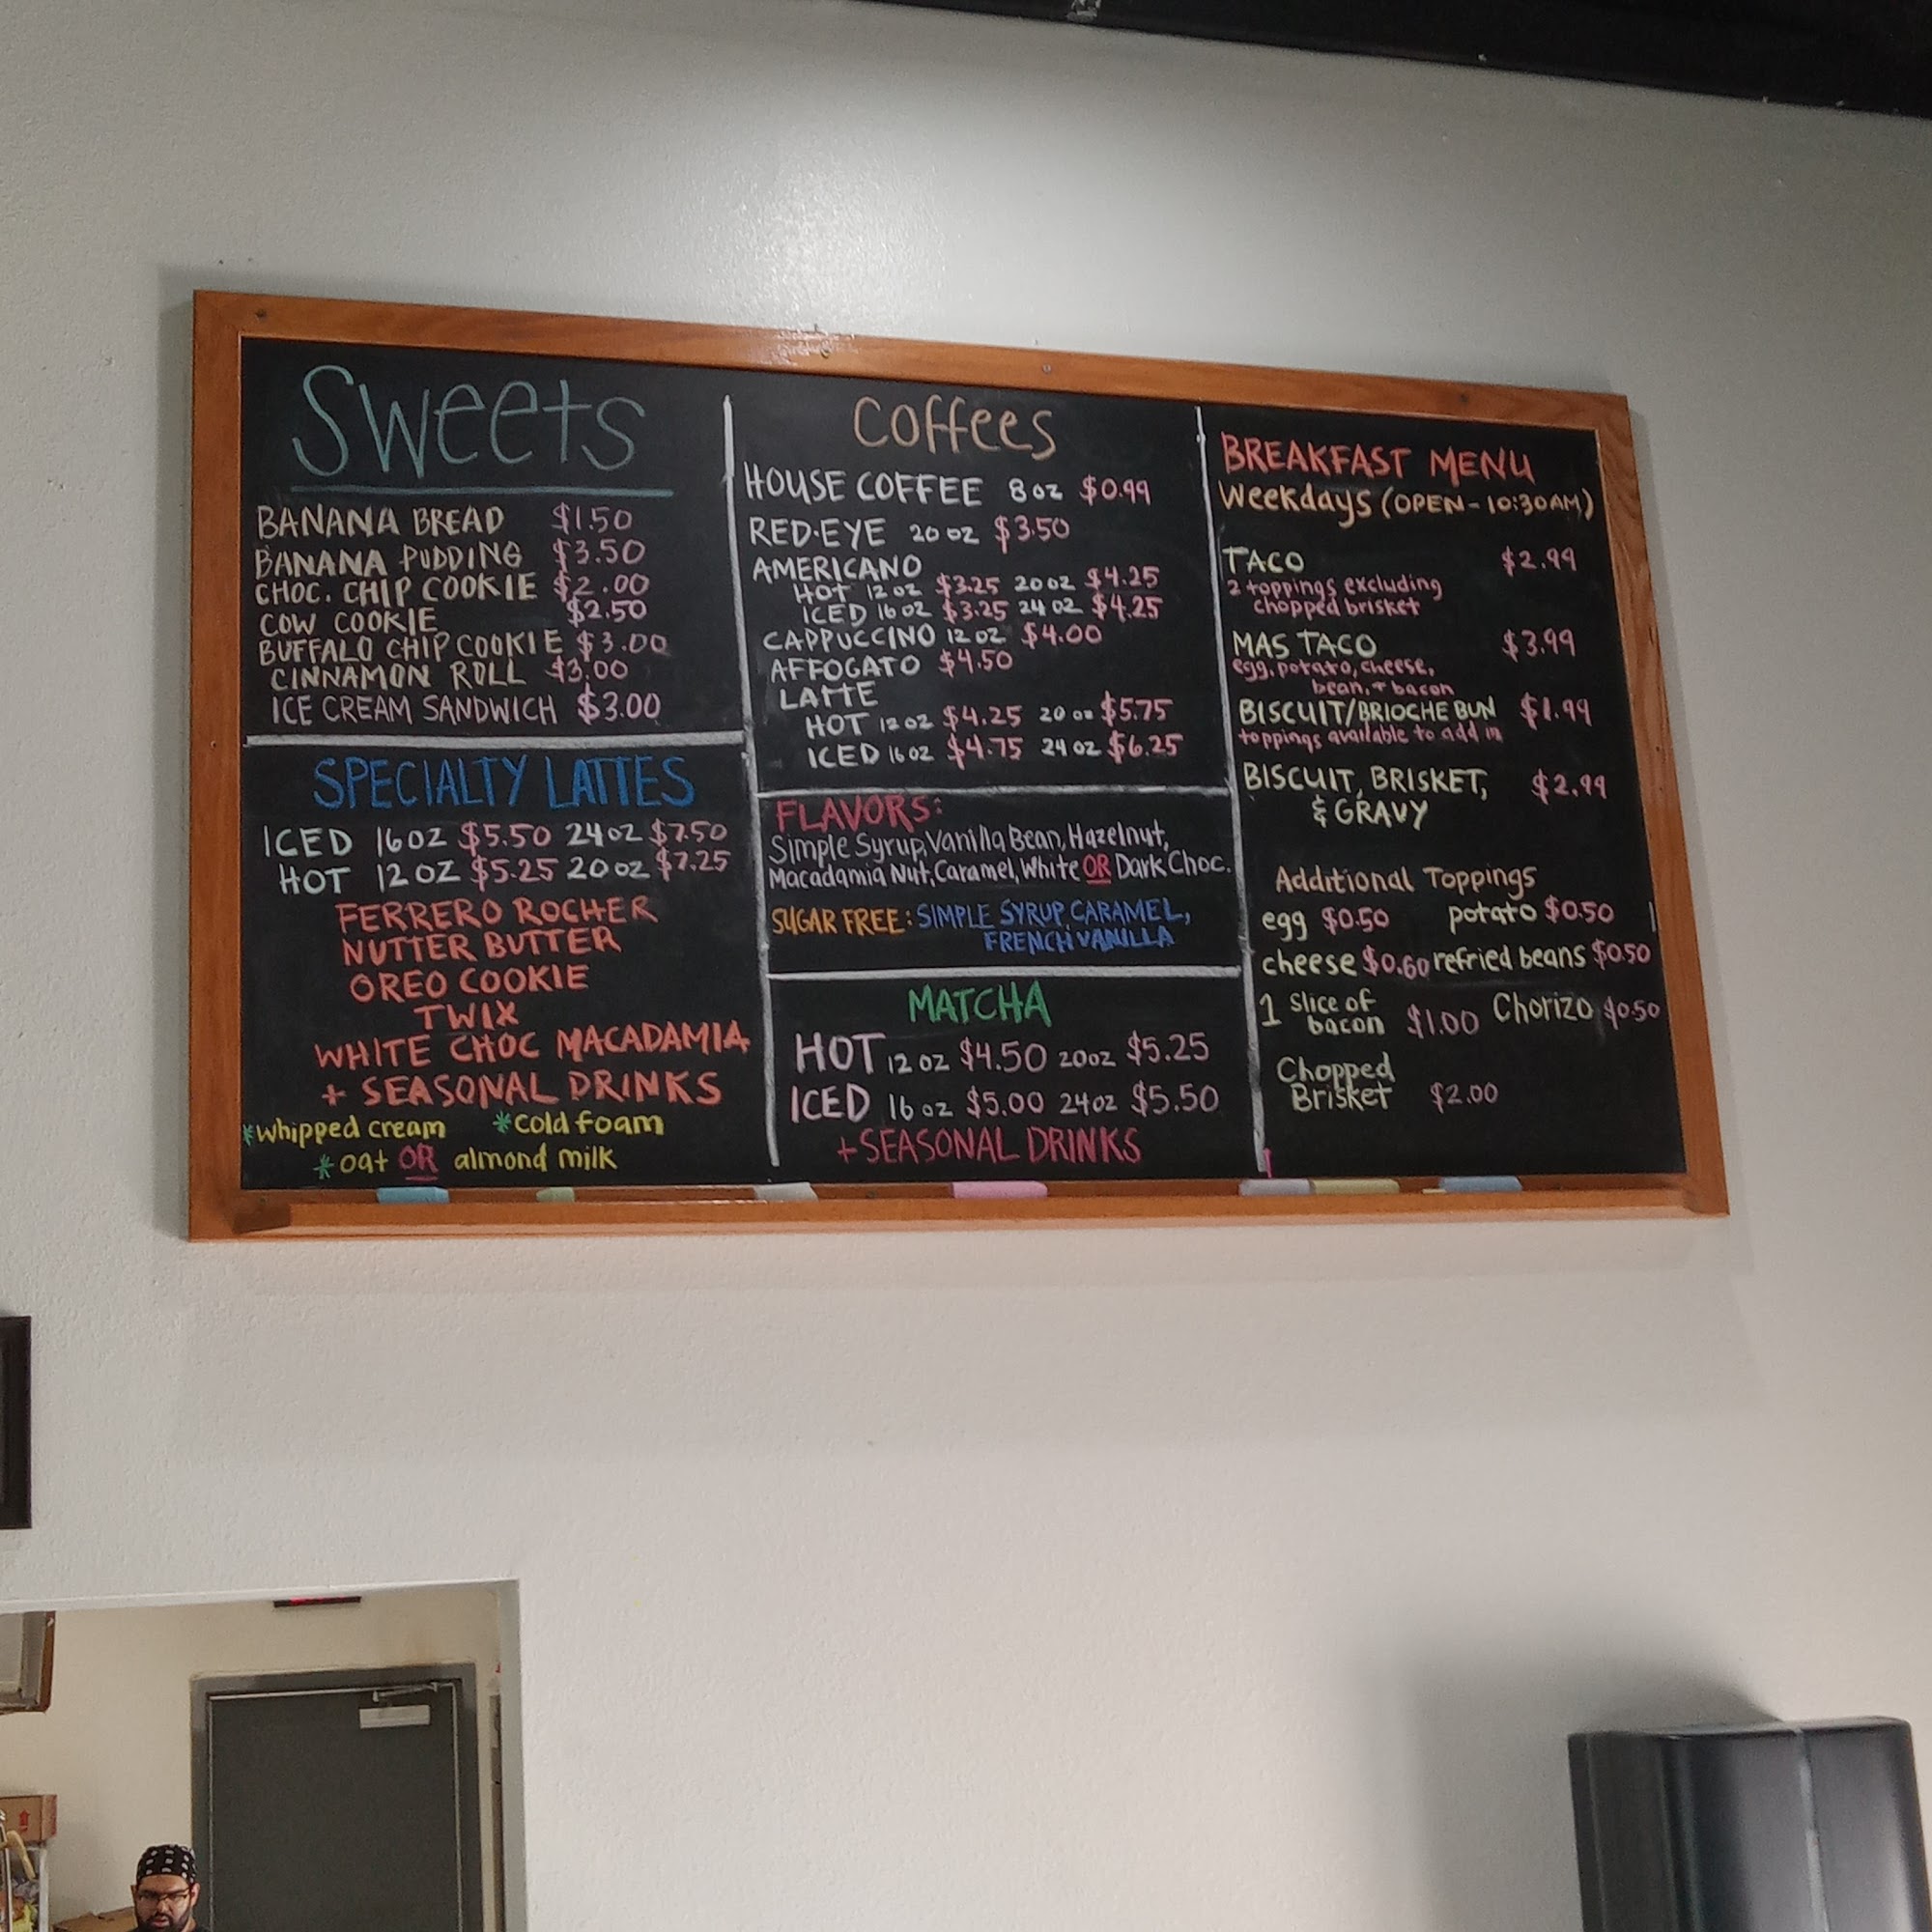 Sweets
BANANA BREAD $1.50
BANANA PUDDING $3.50
CHOC. CHIP COOKIE $2.00
COW COOKIE $2.50
BUFFALO CHIP COOKIE $3.00
CINNAMON ROLL $3.00
ICE CREAM SANDWICH $3.00
SPECIALTY LATTES
ICED 16 OZ $5.50 24 OZ $7.50
HOT 12 OZ $5.25 20 OZ $7.25
FERRERO ROCHER
NUTTER BUTTER
OREO COOKIE
TWIX
WHITE CHOC MACADAMIA
+ SEASONAL DRINKS
*whipped cream *cold foam
*oat OR almond milk
Coffees
HOUSE COFFEE 8 oz $0.99
RED·EYE 20 oz $3.50
AMERICANO
HOT 12 oz $3.25 20 oz $4.25
ICED 16 oz $3.25 24 oz $4.25
CAPPUCCINO 12 oz $4.00
AFFOGATO $4.50
LATTE
HOT 12 oz $4.25 20 oz $5.75
ICED 16 oz $4.75 24 oz $6.25
FLAVORS:
Simple Syrup, Vanilla Bean, Hazelnut,
Macadamia Nut, Caramel, White OR Dark Choc.
SUGAR FREE: SIMPLE SYRUP, CARAMEL,
FRENCH VANILLA
MATCHA
HOT 12 oz $4.50 20oz $5.25
ICED 16 oz $5.00 24oz $5.50
+ SEASONAL DRINKS
BREAKFAST MENU
Weekdays (OPEN - 10:30AM)
TACO $2.99
2 toppings excluding
chopped brisket
MAS TACO $3.99
egg, potato, cheese,
bean, + bacon
BISCUIT/BRIOCHE BUN $1.99
toppings available to add in
BISCUIT, BRISKET, $2.99
& GRAVY
Additional Toppings
egg $0.50 potato $0.50
cheese $0.60 refried beans $0.50
1 slice of bacon $1.00 Chorizo $0.50
Chopped
Brisket $2.00